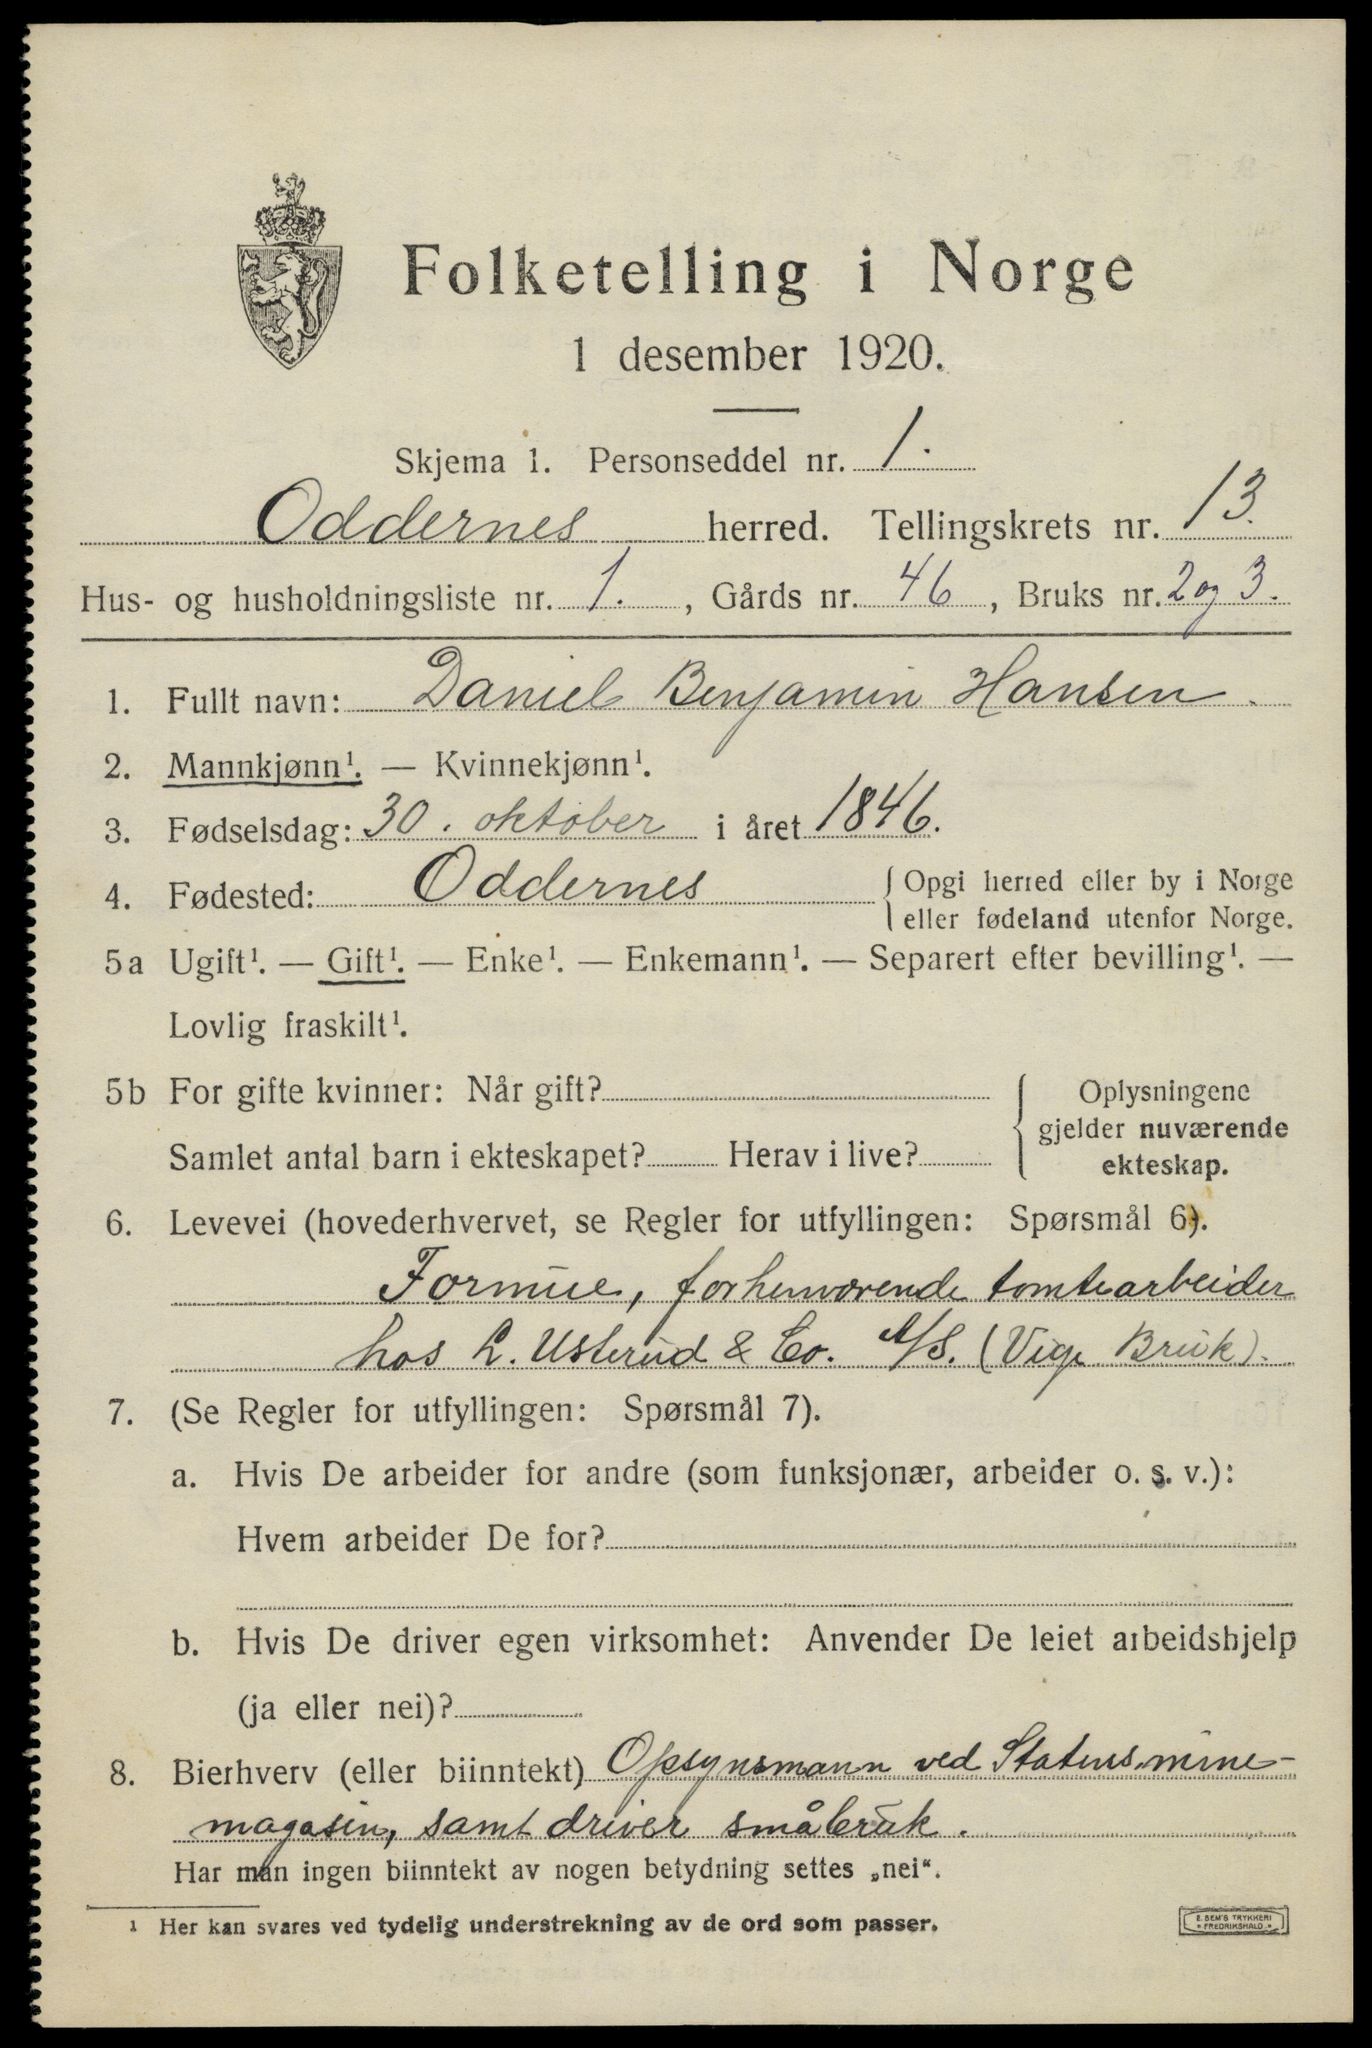 Folketelling i Norge
1 desember 1920.
Skjema 1. Personseddel nr. 1.
Oddernes herred. Tellingskrets nr. 13.
Hus- og husholdningsliste nr. 1., Gårds nr. 46, Bruks nr. 2 og 3.
1. Fullt navn: Daniel Benjamin Hansen.
2. Mannkjønn¹. — Kvinnekjønn¹.
3. Fødselsdag: 30. oktober i året 1846.
4. Fødested: Oddernes { Opgi herred eller by i Norge
eller fødeland utenfor Norge.
5a Ugift¹. — Gift¹. — Enke¹. — Enkemann¹. — Separert efter bevilling¹. —
Lovlig fraskilt¹.
5b For gifte kvinner: Når gift? { Oplysningene
gjelder nuværende
Samlet antal barn i ekteskapet? Herav i live? ekteskap.
6. Levevei (hovederhvervet, se Regler for utfyllingen: Spørsmål 6).
Formue, forhenværende tomtearbeider
hos L. Usterud & Co. A/S. (Vige Bruk).
7. (Se Regler for utfyllingen: Spørsmål 7).
a. Hvis De arbeider for andre (som funksjonær, arbeider o. s. v.):
Hvem arbeider De for?
b. Hvis De driver egen virksomhet: Anvender De leiet arbeidshjelp
(ja eller nei)?
8. Bierhverv (eller biinntekt) Opsynsmann ved Statens mine-
magasin, samt driver småbruk.
Har man ingen biinntekt av nogen betydning settes „nei“.
¹ Her kan svares ved tydelig understrekning av de ord som passer.
E. SEM'S TRYKKERI
* FREDRIKSHALD *